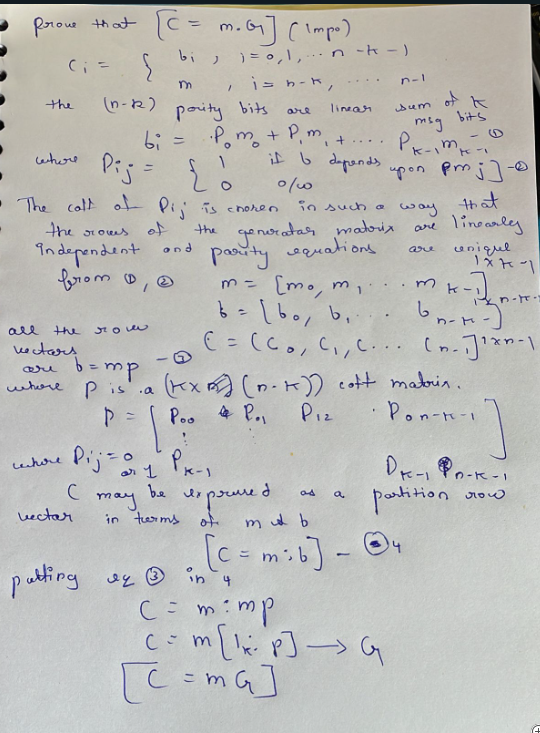 prove that [C = m.G] (Impo)
Ci = { bi , i=0,1,...n-k-1
m , i=n-k, .... n-1
the (n-k) parity bits are linear sum of k
msg bits
bi = P0m0 + P1m1 + .... Pk-1mk-1 -①
where Pij = { 1 if b depends upon pmj] -②
0 o/w
The coff of Pij is chosen in such a way that
the rows of the generator matrix are linearly
independent and parity equations are unique
from ①, ② m = [m0, m1, ... m k-1] 1xk-1
b = [b0, b1, ... b n-k-1] 1xn-k-1
all the row
vectors C = (C0, C1, C... Cn-1] 1xn-1
are b=mp -③
where P is a (k x (n-k)) coff matrix.
P = [ P00 P01 P12 . P0n-k-1
where Pij=0 : :
or 1 Pk-1 Pk-1 Pn-k-1 ]
C may be expressed as a partition row
vector in terms of m & b
[C = m:b] - 4
putting eq ③ in 4
C = m:mp
C = m[Ik: P] → G
[C = mG]